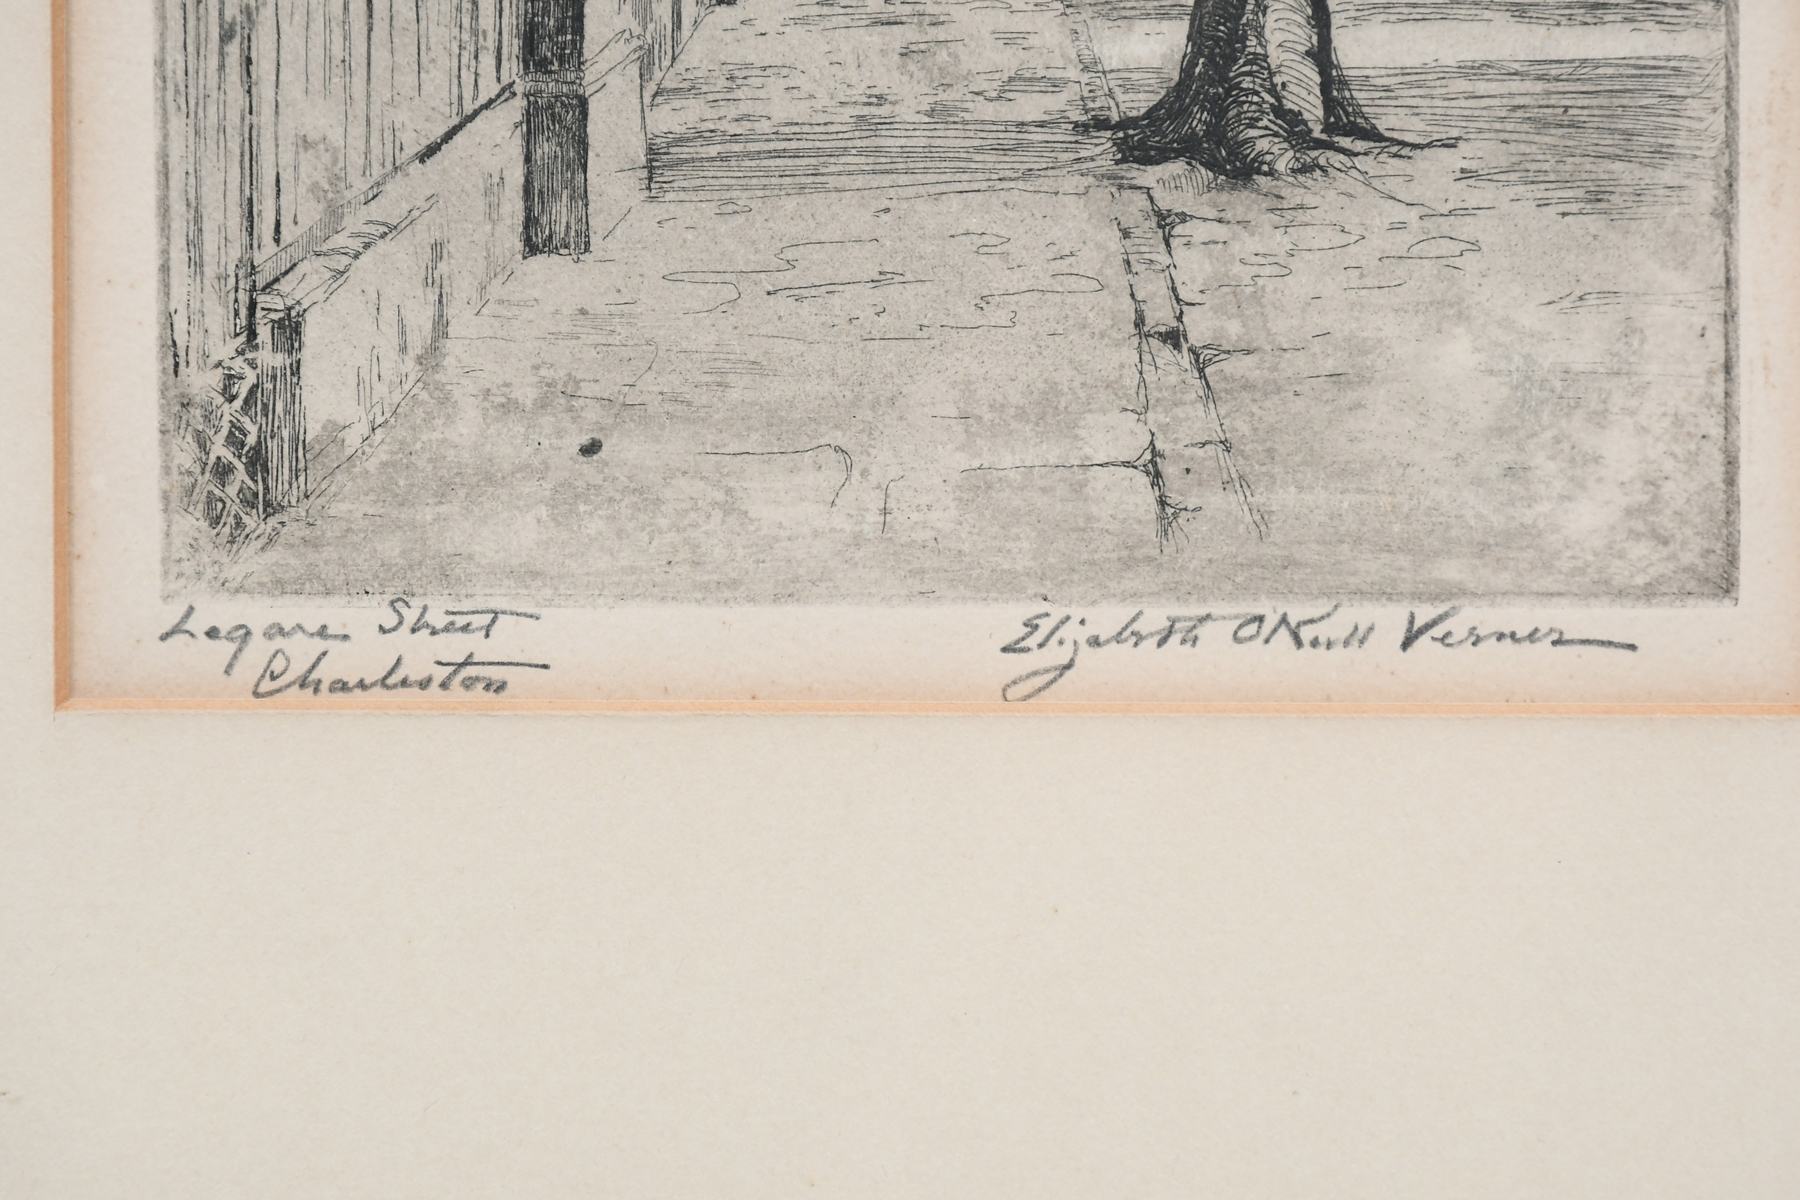 Legare Street
Charleston
Elizabeth O'Neill Verner